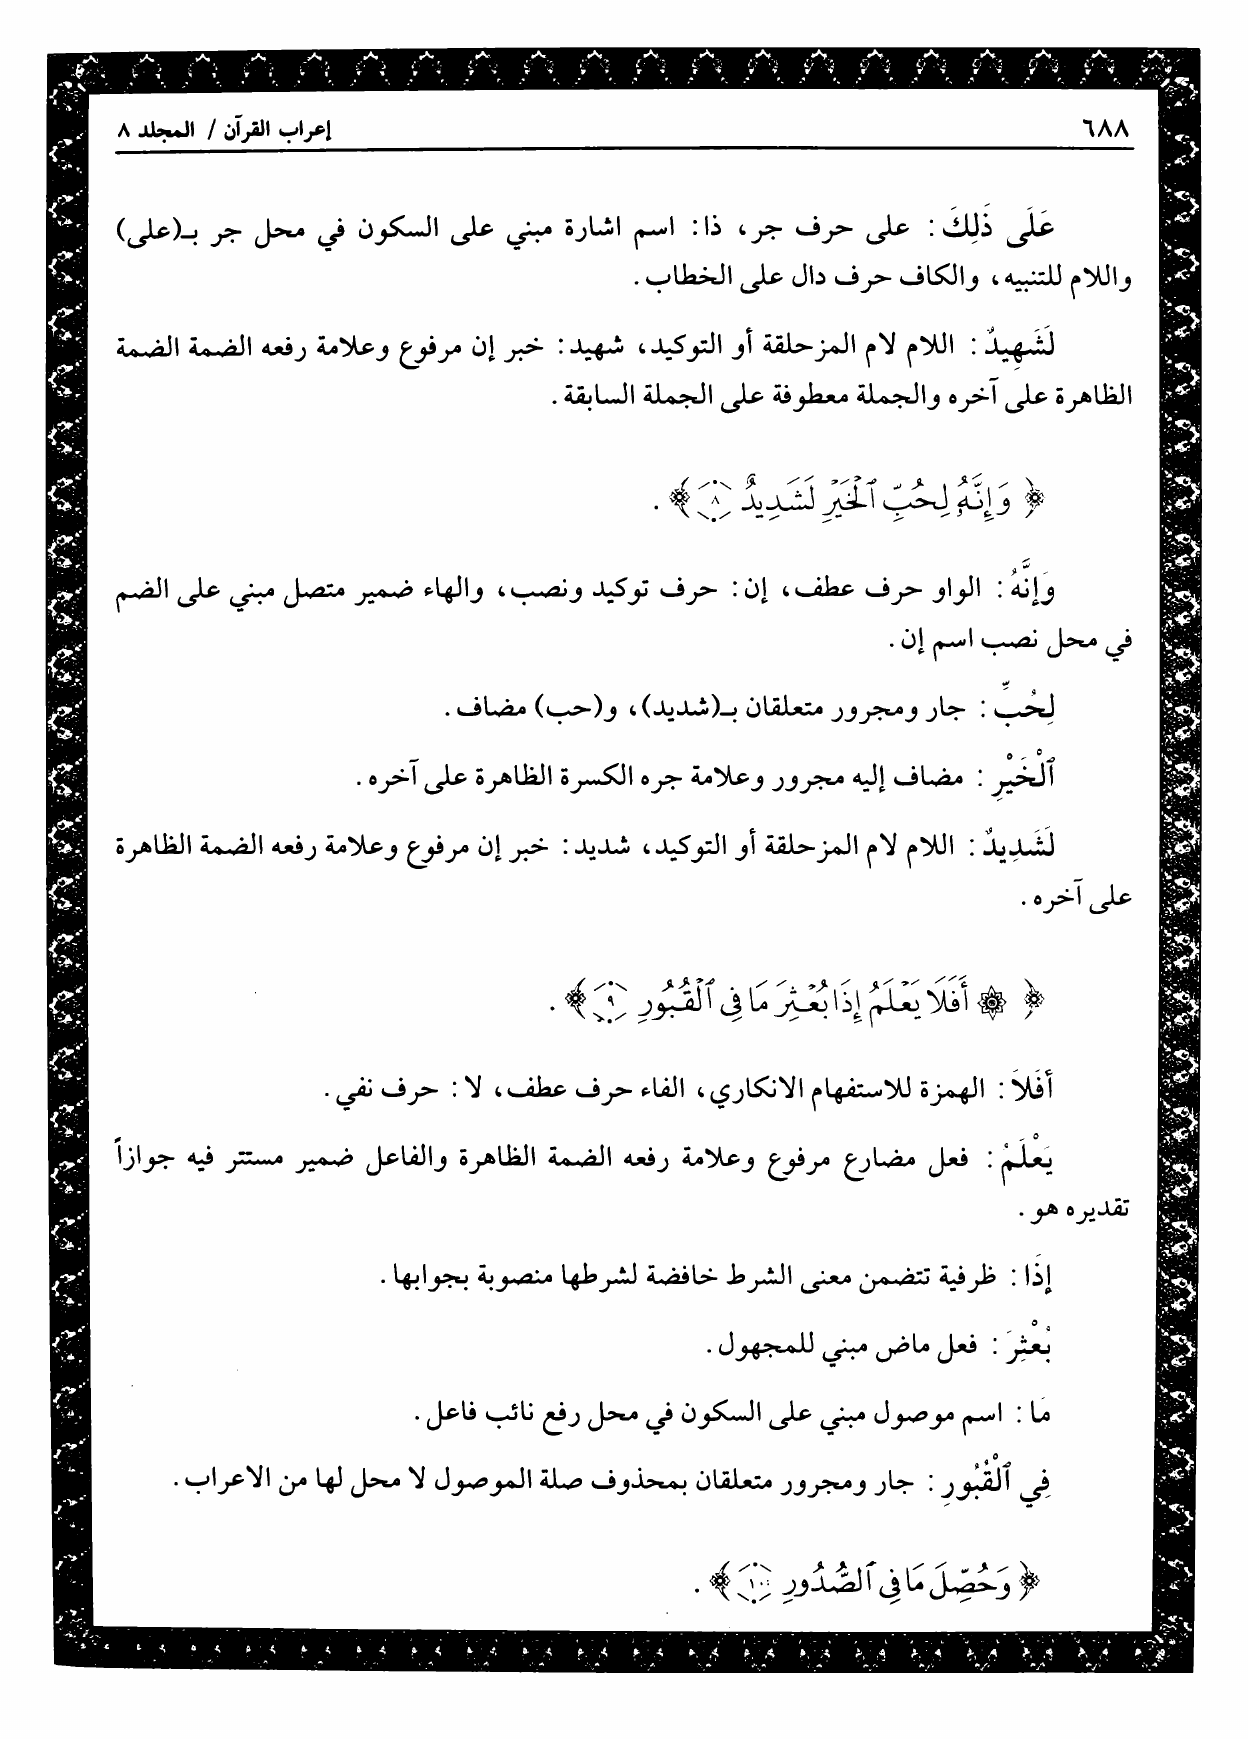 ٦٨٨
إعراب القرآن / المجلد ٨
عَلَى ذَلِكَ : على حرف جر، ذا: اسم اشارة مبني على السكون في محل جر بـ(على)
واللام للتنبيه، والكاف حرف دال على الخطاب.
لَشَهِيدٌ : اللام لام المزحلقة أو التوكيد، شهيد: خبر إن مرفوع وعلامة رفعه الضمة الضمة
الظاهرة على آخره والجملة معطوفة على الجملة السابقة.
﴿ وَإِنَّهُۥ لِحُبِّ ٱلْخَيْرِ لَشَدِيدٌ ٨ ﴾ .
وَإِنَّهُ : الواو حرف عطف، إن: حرف توكيد ونصب، والهاء ضمير متصل مبني على الضم
في محل نصب اسم إن.
لِحُبِّ : جار ومجرور متعلقان بـ(شديد)، و(حب) مضاف.
ٱلْخَيْرِ : مضاف إليه مجرور وعلامة جره الكسرة الظاهرة على آخره.
لَشَدِيدٌ : اللام لام المزحلقة أو التوكيد، شديد: خبر إن مرفوع وعلامة رفعه الضمة الظاهرة
على آخره.
﴿ ۞ أَفَلَا يَعْلَمُ إِذَا بُعْثِرَ مَا فِى ٱلْقُبُورِ ٩ ﴾ .
أَفَلاَ : الهمزة للاستفهام الانكاري، الفاء حرف عطف، لا: حرف نفي.
يَعْلَمُ : فعل مضارع مرفوع وعلامة رفعه الضمة الظاهرة والفاعل ضمير مستتر فيه جوازاً
تقديره هو.
إِذَا : ظرفية تتضمن معنى الشرط خافضة لشرطها منصوبة بجوابها.
بُعْثِرَ : فعل ماض مبني للمجهول.
مَا : اسم موصول مبني على السكون في محل رفع نائب فاعل.
فِي ٱلْقُبُورِ : جار ومجرور متعلقان بمحذوف صلة الموصول لا محل لها من الاعراب.
﴿ وَحُصِّلَ مَا فِى ٱلصُّدُورِ ١٠ ﴾ .